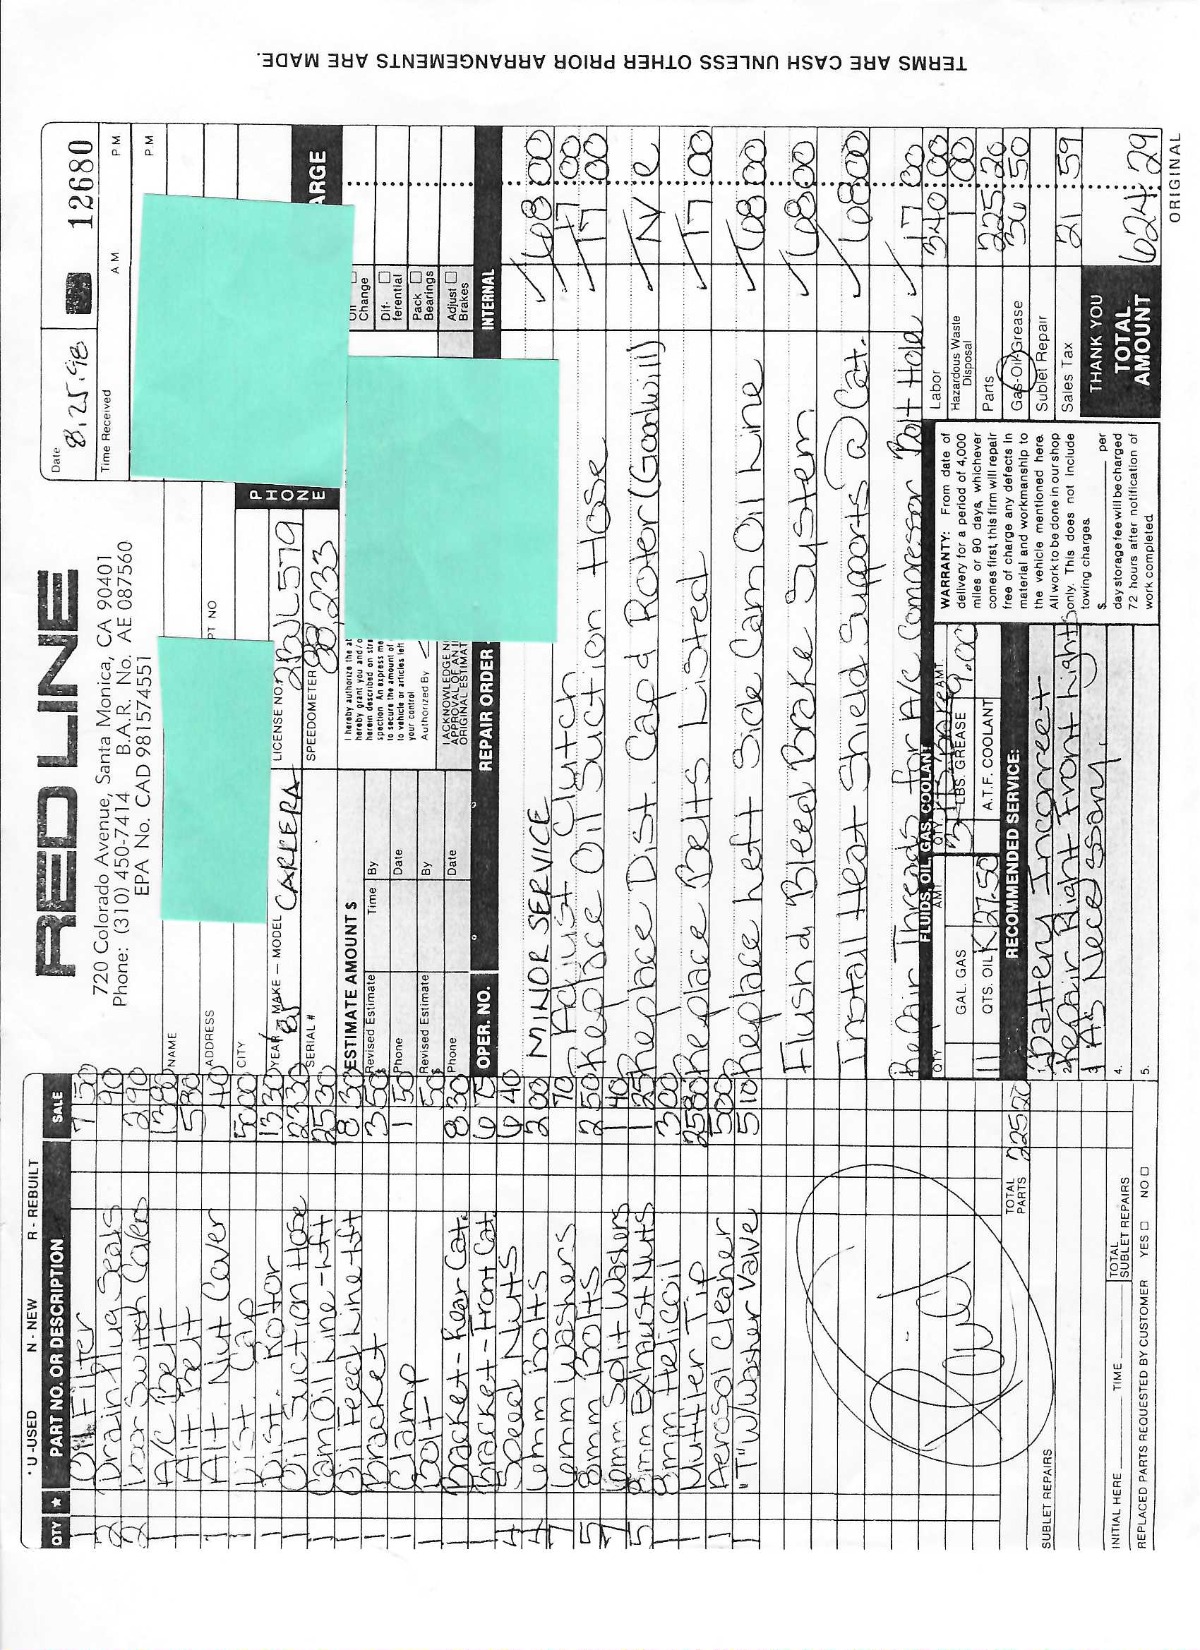 TERMS ARE CASH UNLESS OTHER PRIOR ARRANGEMENTS ARE MADE.
RED LINE
720 Colorado Avenue, Santa Monica, CA 90401
Phone: (310) 450-7414 B.A.R. No. AE 087560
EPA No. CAD 981574551
Date
8.25.98
12680
Time Received
AM
PM
PM
NAME
ADDRESS
PT NO
CITY
PHONE
YEAR — MAKE — MODEL
CARRERA
LICENSE NO.
2BJL579
SERIAL #
SPEEDOMETER
88,233
ARGE
ESTIMATE AMOUNT $
Revised Estimate
Time
By
Phone
Date
Revised Estimate
By
Phone
Date
I hereby authorize the
hereby grant you and/o
herein described on stre
spection. An express me
to secure the amount of
to vehicle or articles left
your control
Authorized By
I ACKNOWLEDGE N
APPROVAL OF AN I
ORIGINAL ESTIMAT
Oil Change
Differential
Pack Bearings
Adjust Brakes
OPER. NO.
REPAIR ORDER
INTERNAL
MINOR SERVICE 168 00
Adjust Clutch 17 00
Replace Oil Suction Hose 17 00
Replace Dist. Cap & Rotor (Goodwill) N C
Replace Belts Listed 17 00
Replace Left Side Cam Oil Line 68 00
Flush & Bleed Brake System 68 00
Install Heat Shield Supports @ Cat. 68 00
Repair Threads for A/C Compressor Bolt Hole 17 00
* U-USED N - NEW R - REBUILT
QTY ★ PART NO. OR DESCRIPTION SALE
1 Oil Filter 7 50
2 Drain Plug Seals 90
2 Door Switch Covers 2 90
1 A/C Belt
1 Alt Belt
1 Alt Nut Cover 40
1 Dist. Cap
1 Dist. Rotor
1 Oil Suction Hose
1 Cam Oil Line-Lft
1 Oil Feed Line-Lft 8 30
1 Bracket 3 50
1 Clamp 1 50
1 Bolt 50
1 Bracket - Rear Cat. 8 30
1 Bracket - Front Cat. 6 75
4 Speed Nuts 6 40
4 6mm Bolts 2 00
7 6mm Washers 70
5 8mm Bolts 2 50
7 6mm Split Washers 1 40
5 8mm Exhaust Nuts 1 25
1 8mm Helicoil 3 00
1 Muffler Tip
1 Aerosol Cleaner 5 00
1 "T" W/Washer Valve 5 10
TOTAL PARTS 225 20
Paid
SUBLET REPAIRS
TOTAL SUBLET REPAIRS
INITIAL HERE TIME
REPLACED PARTS REQUESTED BY CUSTOMER YES NO
FLUIDS, OIL, GAS, COOLANT
QTY AMT QTY AMT
GAL. GAS
LBS. GREASE
9.00
11 QTS. OIL K 27.50
A.T.F. COOLANT
RECOMMENDED SERVICE:
1. Battery Incorrect
2. Repair Right Front Lights
3. As Necessary.
4.
5.
WARRANTY: From date of
delivery for a period of 4,000
miles or 90 days, whichever
comes first, this firm will repair
free of charge any defects in
material and workmanship to
the vehicle mentioned here.
All work to be done in our shop
only. This does not include
towing charges.
$ per
day storage fee will be charged
72 hours after notification of
work completed.
Labor 340 00
Hazardous Waste Disposal 1 00
Parts 225 20
Gas-Oil-Grease 36 50
Sublet Repair
Sales Tax 21 59
THANK YOU
TOTAL AMOUNT 624 29
ORIGINAL